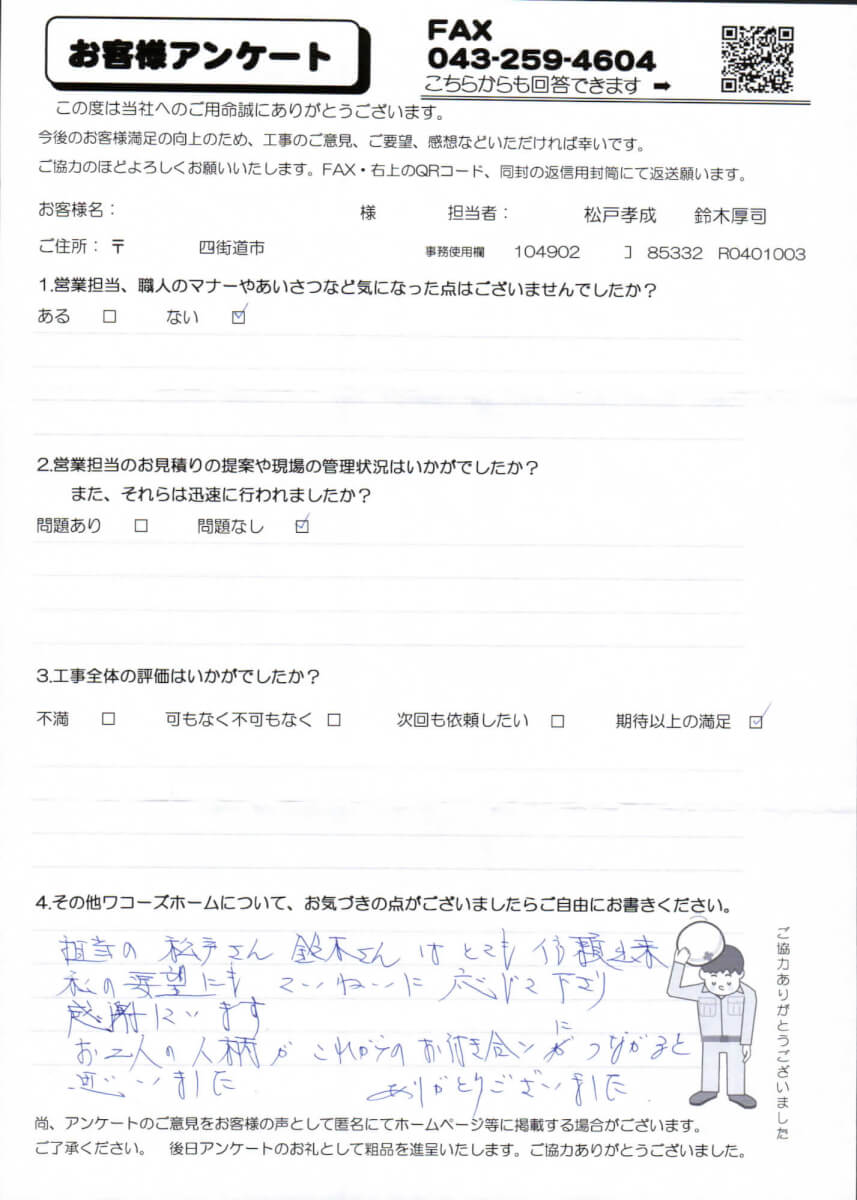 お客様アンケート
FAX
043-259-4604
こちらからも回答できます ➡
この度は当社へのご用命誠にありがとうございます。
今後のお客様満足の向上のため、工事のご意見、ご要望、感想などいただければ幸いです。
ご協力のほどよろしくお願いいたします。FAX・右上のQRコード、同封の返信用封筒にて返送願います。
お客様名: 様 担当者: 松戸孝成 鈴木厚司
ご住所:〒 四街道市 事務使用欄 104902 コ 85332 R0401003
1.営業担当、職人のマナーやあいさつなど気になった点はございませんでしたか?
ある □ ない ☑
2.営業担当のお見積りの提案や現場の管理状況はいかがでしたか?
また、それらは迅速に行われましたか?
問題あり □ 問題なし ☑
3.工事全体の評価はいかがでしたか?
不満 □ 可もなく不可もなく □ 次回も依頼したい □ 期待以上の満足 ☑
4.その他ワコーズホームについて、お気づきの点がございましたらご自由にお書きください。
担当の 松戸さん 鈴木さん は とても 信頼出来
私の要望にも ていねいに 応じて下さり
感謝しています
お二人の人柄が これからの お付き合いに つながると
思いました ありがとうございました.
ご協力ありがとうございました
尚、アンケートのご意見をお客様の声として匿名にてホームページ等に掲載する場合がございます。
ご了承ください。 後日アンケートのお礼として粗品を進呈いたします。ご協力ありがとうございました。